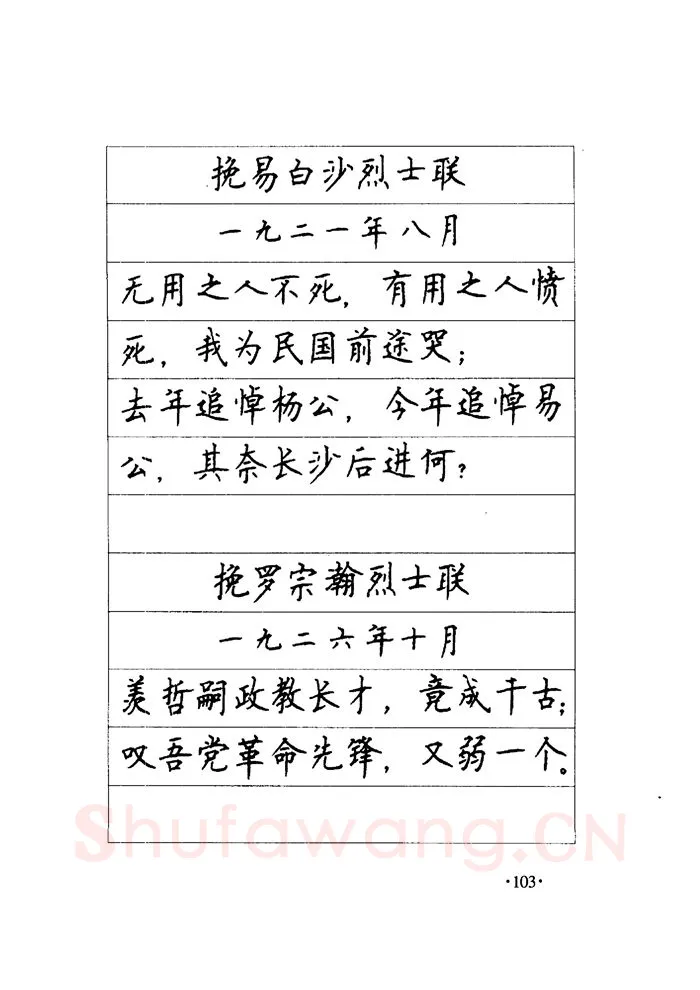 挽易白沙烈士联
一九二一年八月
无用之人不死，有用之人愤
死，我为民国前途哭；
去年追悼杨公，今年追悼易
公，其奈长沙后进何？
挽罗宗瀚烈士联
一九二六年十月
羡哲嗣政教长才，竟成千古；
叹吾党革命先锋，又弱一个。
Shufawang.CN
·103·